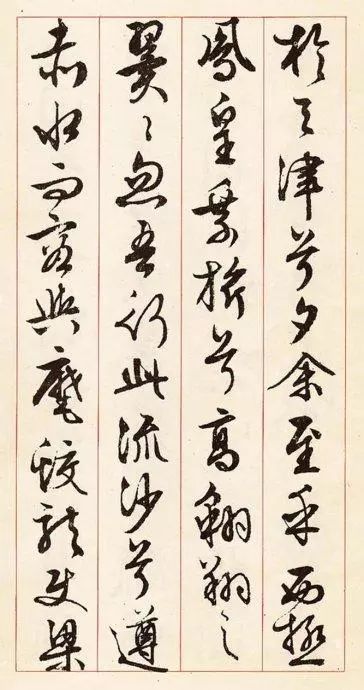 於天津兮夕余至乎西極
鳳皇旂兮高翱翔之
翼〻忽吾行此流沙兮遵
赤水而容與麾蛟龍使梁